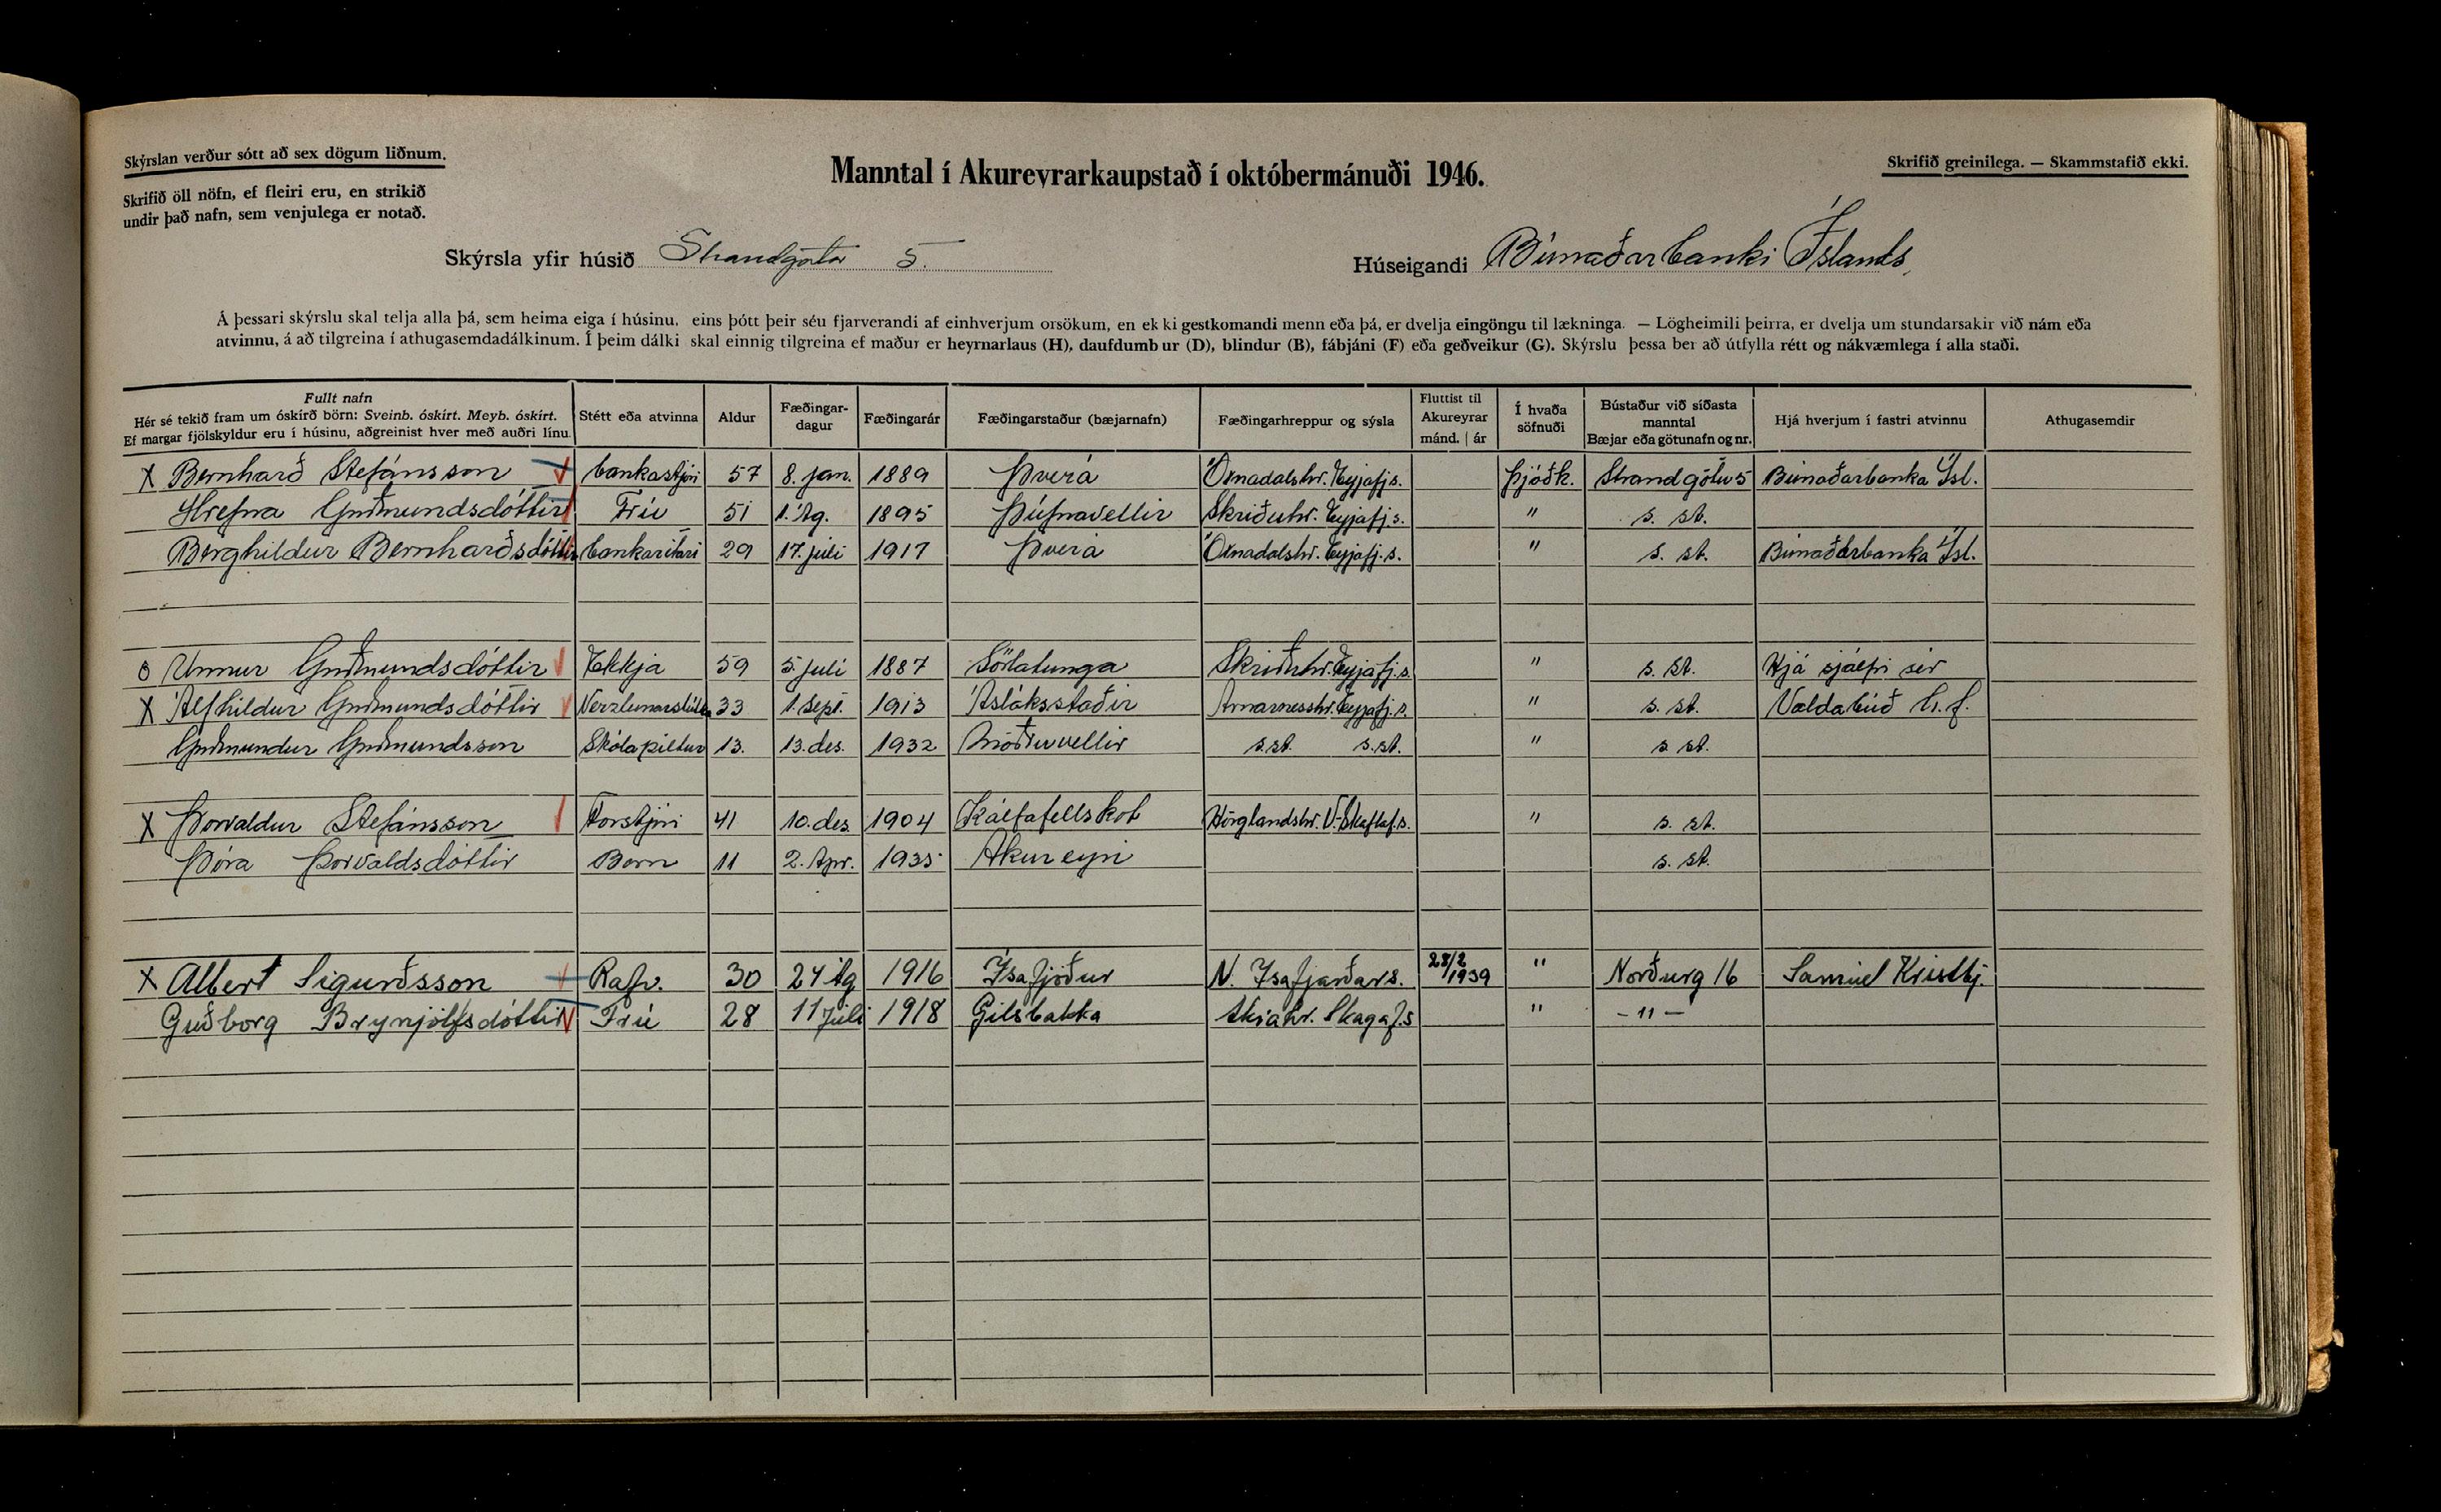 Skýrslan verður sótt að sex dögum liðnum.
Skrifið öll nöfn, ef fleiri eru, en strikið
undir það nafn, sem venjulega er notað.
Manntal í Akureyrarkaupstað í októbermánuði 1946.
Skrifið greinilega. — Skammstafið ekki.
Skýrsla yfir húsið Strandgata 5.
Húseigandi Búnaðarbanki Íslands.
Á þessari skýrslu skal telja alla þá, sem heima eiga í húsinu, eins þótt þeir séu fjarverandi af einhverjum orsökum, en ekki gestkomandi menn eða þá, er dvelja eingöngu til lækninga. — Lögheimili þeirra, er dvelja um stundarsakir við nám eða
atvinnu, á að tilgreina í athugasemdadálkinum. Í þeim dálki skal einnig tilgreina ef maður er heyrnarlaus (H), daufdumbur (D), blindur (B), fábjáni (F) eða geðveikur (G). Skýrslu þessa ber að útfylla rétt og nákvæmlega í alla staði.
Fullt nafn
Hér sé tekið fram um óskírð börn: Sveinb. óskírt. Meyb. óskírt.
Ef margar fjölskyldur eru í húsinu, aðgreinist hver með auðri línu.
Stétt eða atvinna
Aldur
Fæðingar-
dagur
Fæðingarár
Fæðingarstaður (bæjarnafn)
Fæðingarhreppur og sýsla
Fluttist til
Akureyrar
mánd. | ár
Í hvaða
söfnuði
Bústaður við síðasta
manntal
Bæjar eða götunafn og nr.
Hjá hverjum í fastri atvinnu
Athugasemdir
X Bernharð Stefánsson bankastjóri 57 8. jan. 1889 Þverá Öxnadalshr. Eyjafj.s. Þjóðk. Strandgötu 5 Búnaðarbanka Ísl.
Hrefna Guðmundsdóttir Frú 51 1. Ág. 1895 Þúfnavellir Skriðuhr. Eyjafj.s. " s. st.
Berghildur Bernharðsdóttir bankaritari 29 17. júlí 1917 Þverá Öxnadalshr. Eyjafj.s. " s. st. Búnaðarbanka Ísl.
o Unnur Guðmundsdóttir Ekkja 59 5. júlí 1887 Sörlatunga Skriðuhr. Eyjafj.s. " s. st. Hjá sjálfri sér
X Álfhildur Guðmundsdóttir Verzlunarstúlka 33 1. Sept. 1913 Ásláksstaðir Arnarnesshr. Eyjafj.s. " s. st. Valdabúð h.f.
Guðmundur Guðmundsson Skólapiltur 13. 13. des. 1932 Möðruvellir s.st. s.st. " s st.
X Þorvaldur Stefánsson Forstjóri 41 10. des. 1904 Kálfafellskot Hörglandshr. V.-Skaftaf.s. " s. st.
Þóra Þorvaldsdóttir Barn 11 2. Apr. 1935 Akureyri s. st.
X Albert Sigurðsson Rafv. 30 24 Ág 1916 Ísafjörður N. Ísafjarðars. 28/2 1939 " Norðurg 16 Samúel Kristbj.
Guðborg Brynjólfsdóttir Frú 28 11 Júlí 1918 Gilsbakka Akrahr. Skagaf.s " - 11 -